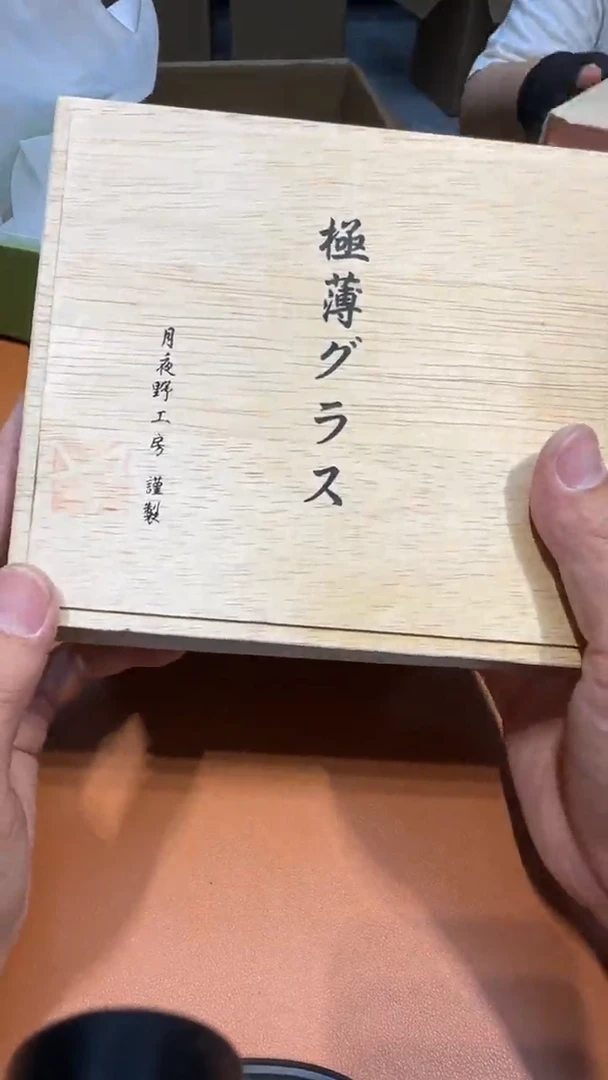 極薄グラス
月夜野工房 謹製